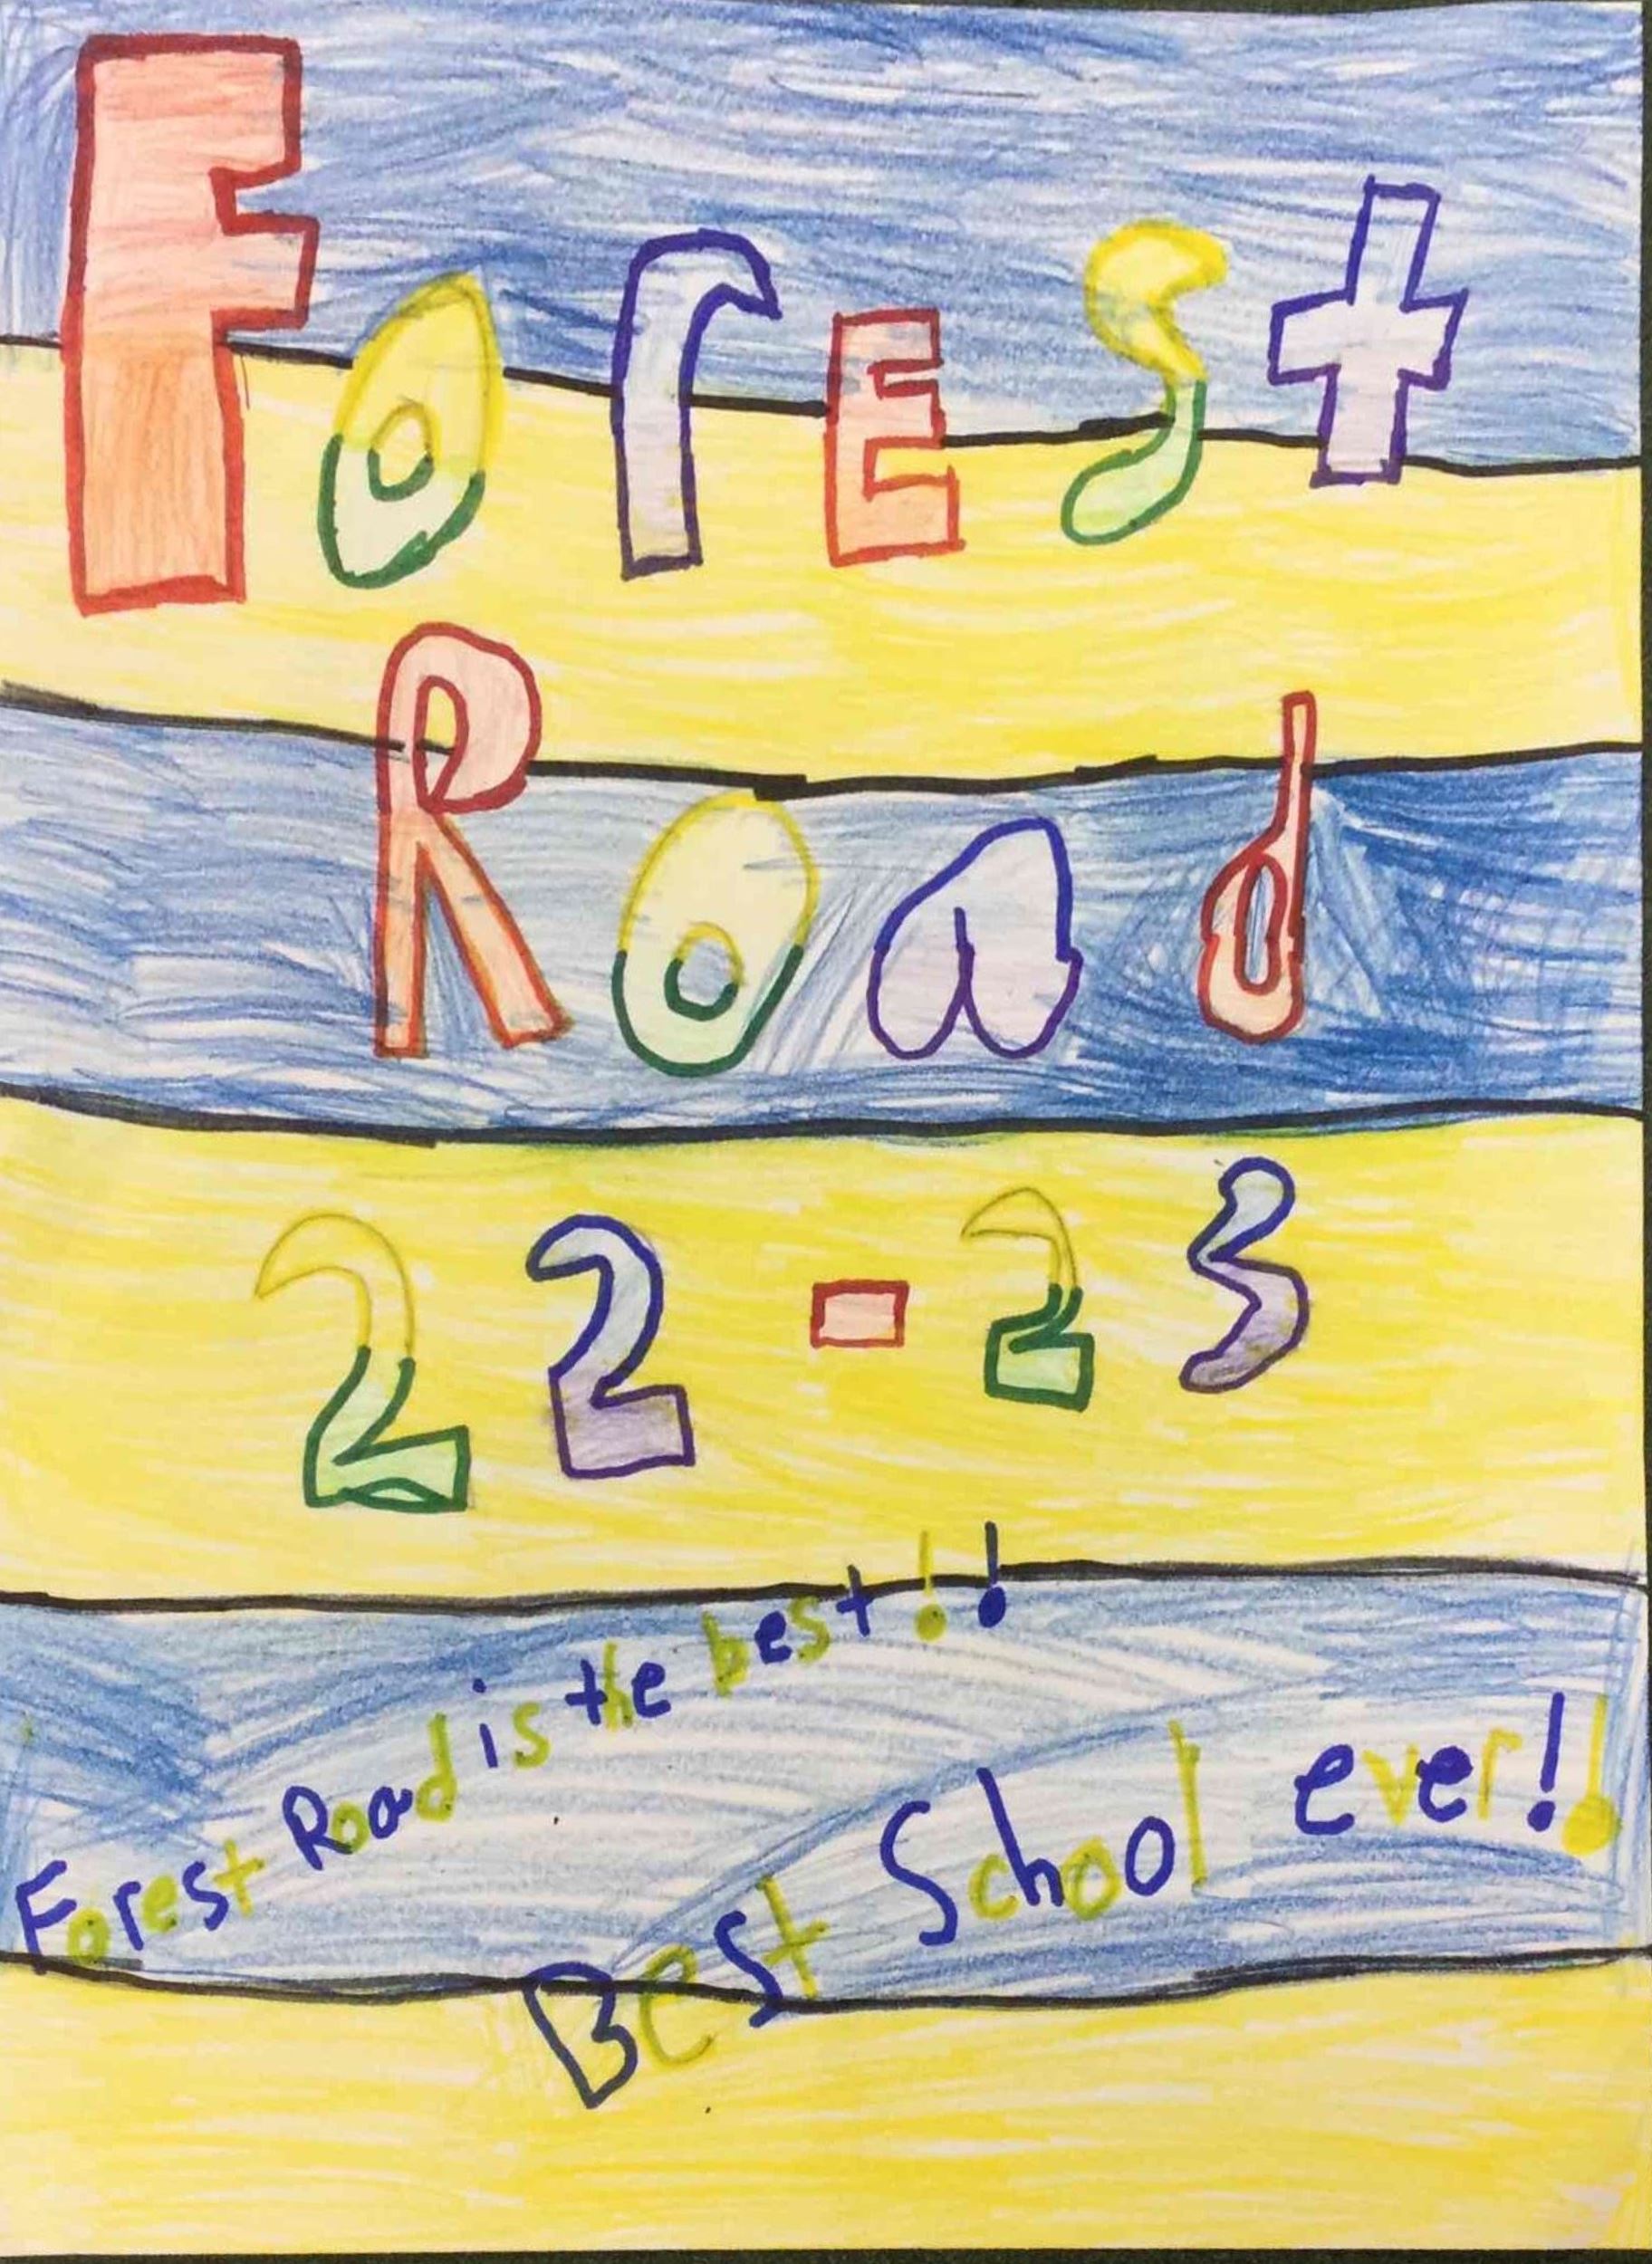 ForEst
Road
22-23
Forest Road is the best!!
Best School ever!!